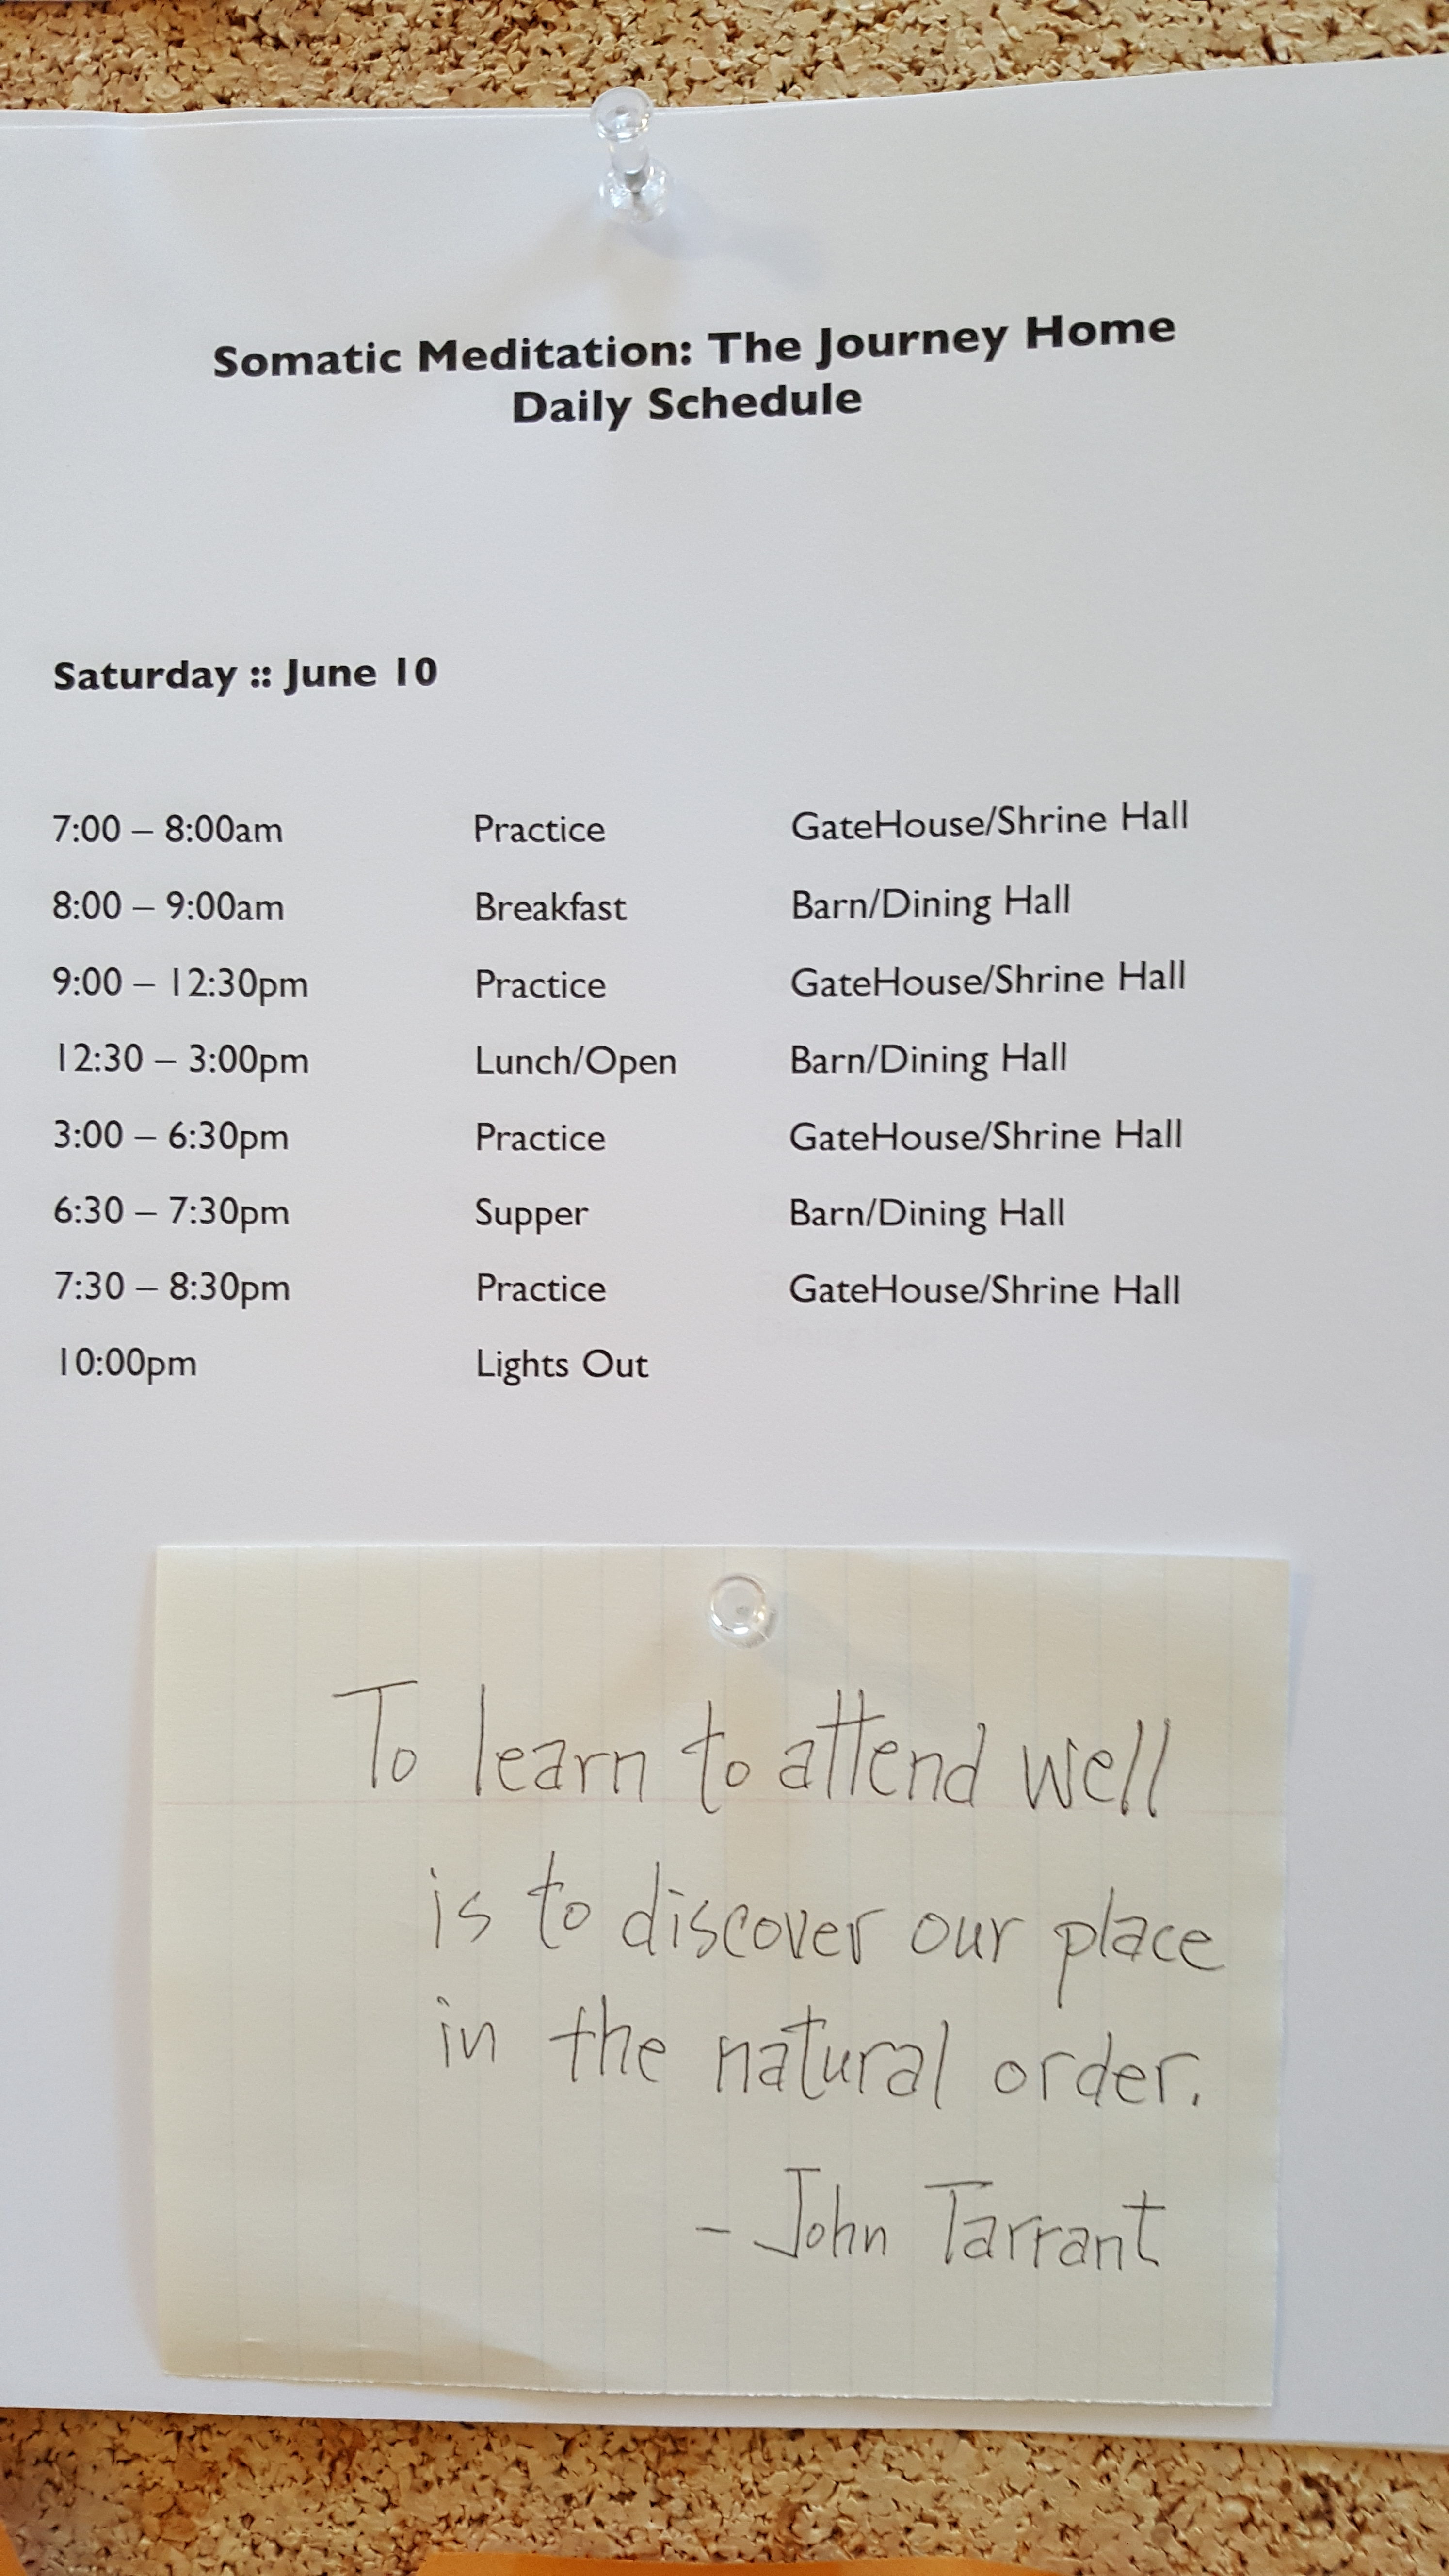 Somatic Meditation: The Journey Home
Daily Schedule
Saturday :: June 10
7:00 – 8:00am Practice GateHouse/Shrine Hall
8:00 – 9:00am Breakfast Barn/Dining Hall
9:00 – 12:30pm Practice GateHouse/Shrine Hall
12:30 – 3:00pm Lunch/Open Barn/Dining Hall
3:00 – 6:30pm Practice GateHouse/Shrine Hall
6:30 – 7:30pm Supper Barn/Dining Hall
7:30 – 8:30pm Practice GateHouse/Shrine Hall
10:00pm Lights Out
To learn to attend well
is to discover our place
in the natural order.
- John Tarrant